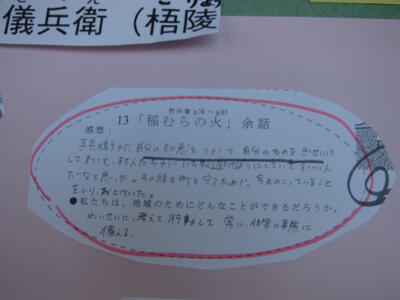 儀兵衛（梧陵
教科書 p.78 ～ p.83
13 「稲むらの火」余話
感想：
五兵衛さんが、自分の知恵をつかって、自分のものをぎせいに
してまでも、村人たちがいち早く逃げるようにしていて、すごい人
だなと思った。その後も町を守るために、今ものこっていること
をしり、おどろいた。
●私たちは、地域のためにどんなことができるだろうか。
れいせいに、考えて行動して、常に、非常の事態に
備える。